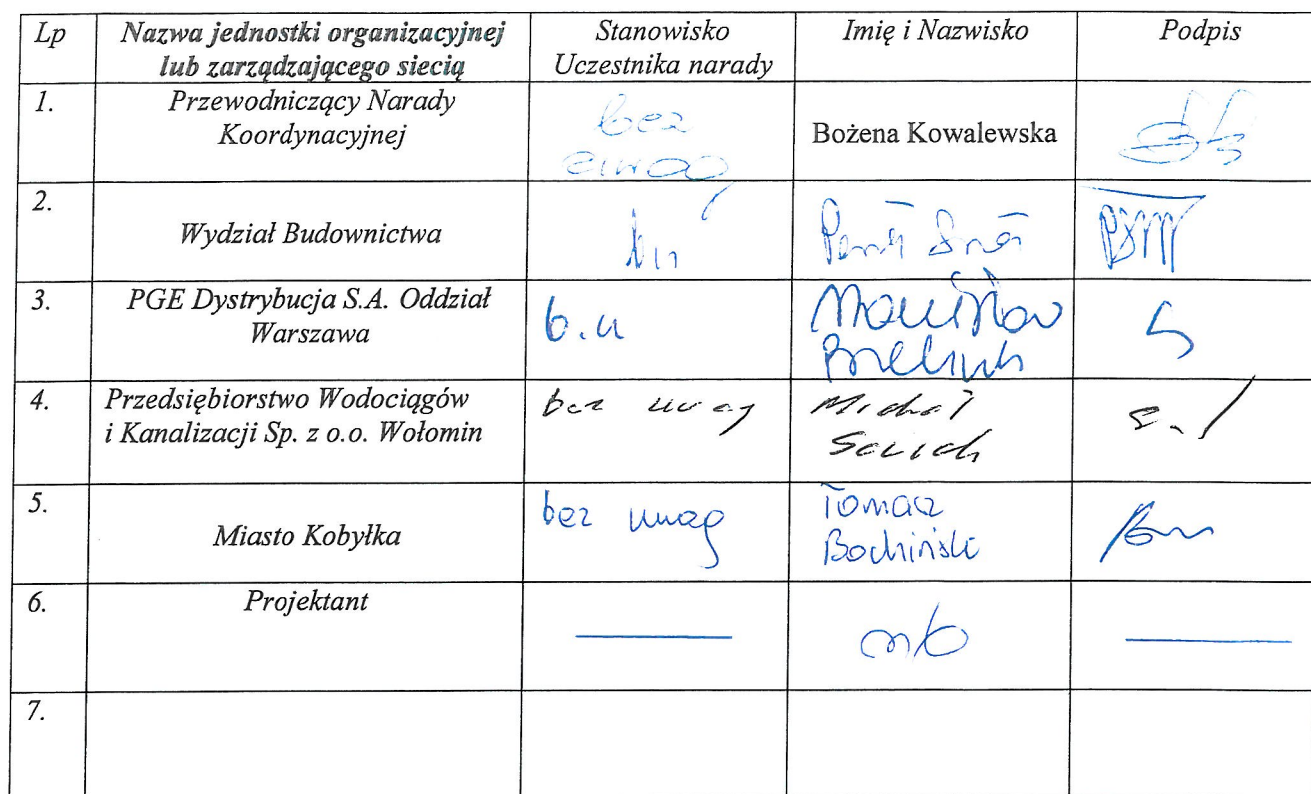 Lp Nazwa jednostki organizacyjnej lub zarządzającego siecią Stanowisko Uczestnika narady Imię i Nazwisko Podpis
1. Przewodniczący Narady Koordynacyjnej bez uwag Bożena Kowalewska
2. Wydział Budownictwa
3. PGE Dystrybucja S.A. Oddział Warszawa b.u
4. Przedsiębiorstwo Wodociągów i Kanalizacji Sp. z o.o. Wołomin bez uwag Michał
5. Miasto Kobyłka bez uwag Tomasz Bochiński
6. Projektant
7.